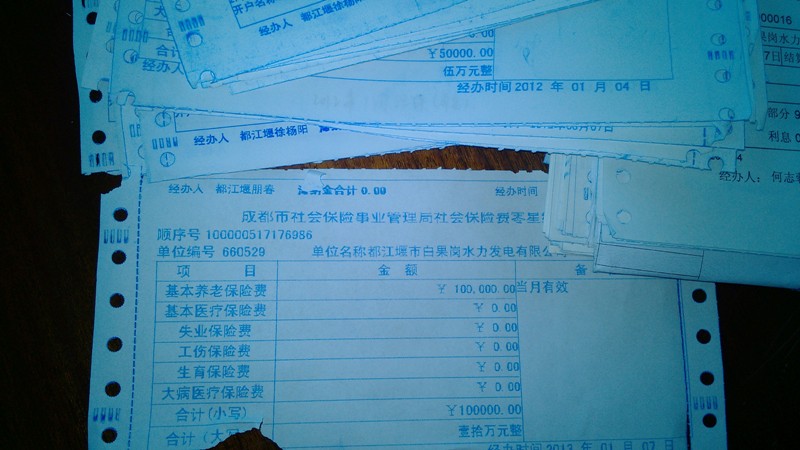 开户名称
经办人 都江堰徐杨阳
大
0.00
合计
￥50000.00
经办人
伍万元整
经办时间2012 年 01 月 04 日
经办人 都江堰徐杨阳
000016
果岗水力
7日 结算
部分 9
利息 0
4
经办人: 何志
经办人 都江堰朋春
金合计 0.00
经办时间
成都市社会保险事业管理局社会保险费零星
顺序号 100000517176986
单位编号 660529 单位名称都江堰市白果岗水力发电有限公
项 目 金 额 备
基本养老保险费 ￥ 100,000.00 当月有效
基本医疗保险费 ￥ 0.00
失业保险费 ￥ 0.00
工伤保险费 ￥ 0.00
生育保险费 ￥ 0.00
大病医疗保险费 ￥ 0.00
合计(小写) ￥100000.00
合计 (大 壹拾万元整
经办时间2013 年 01 月 07 日